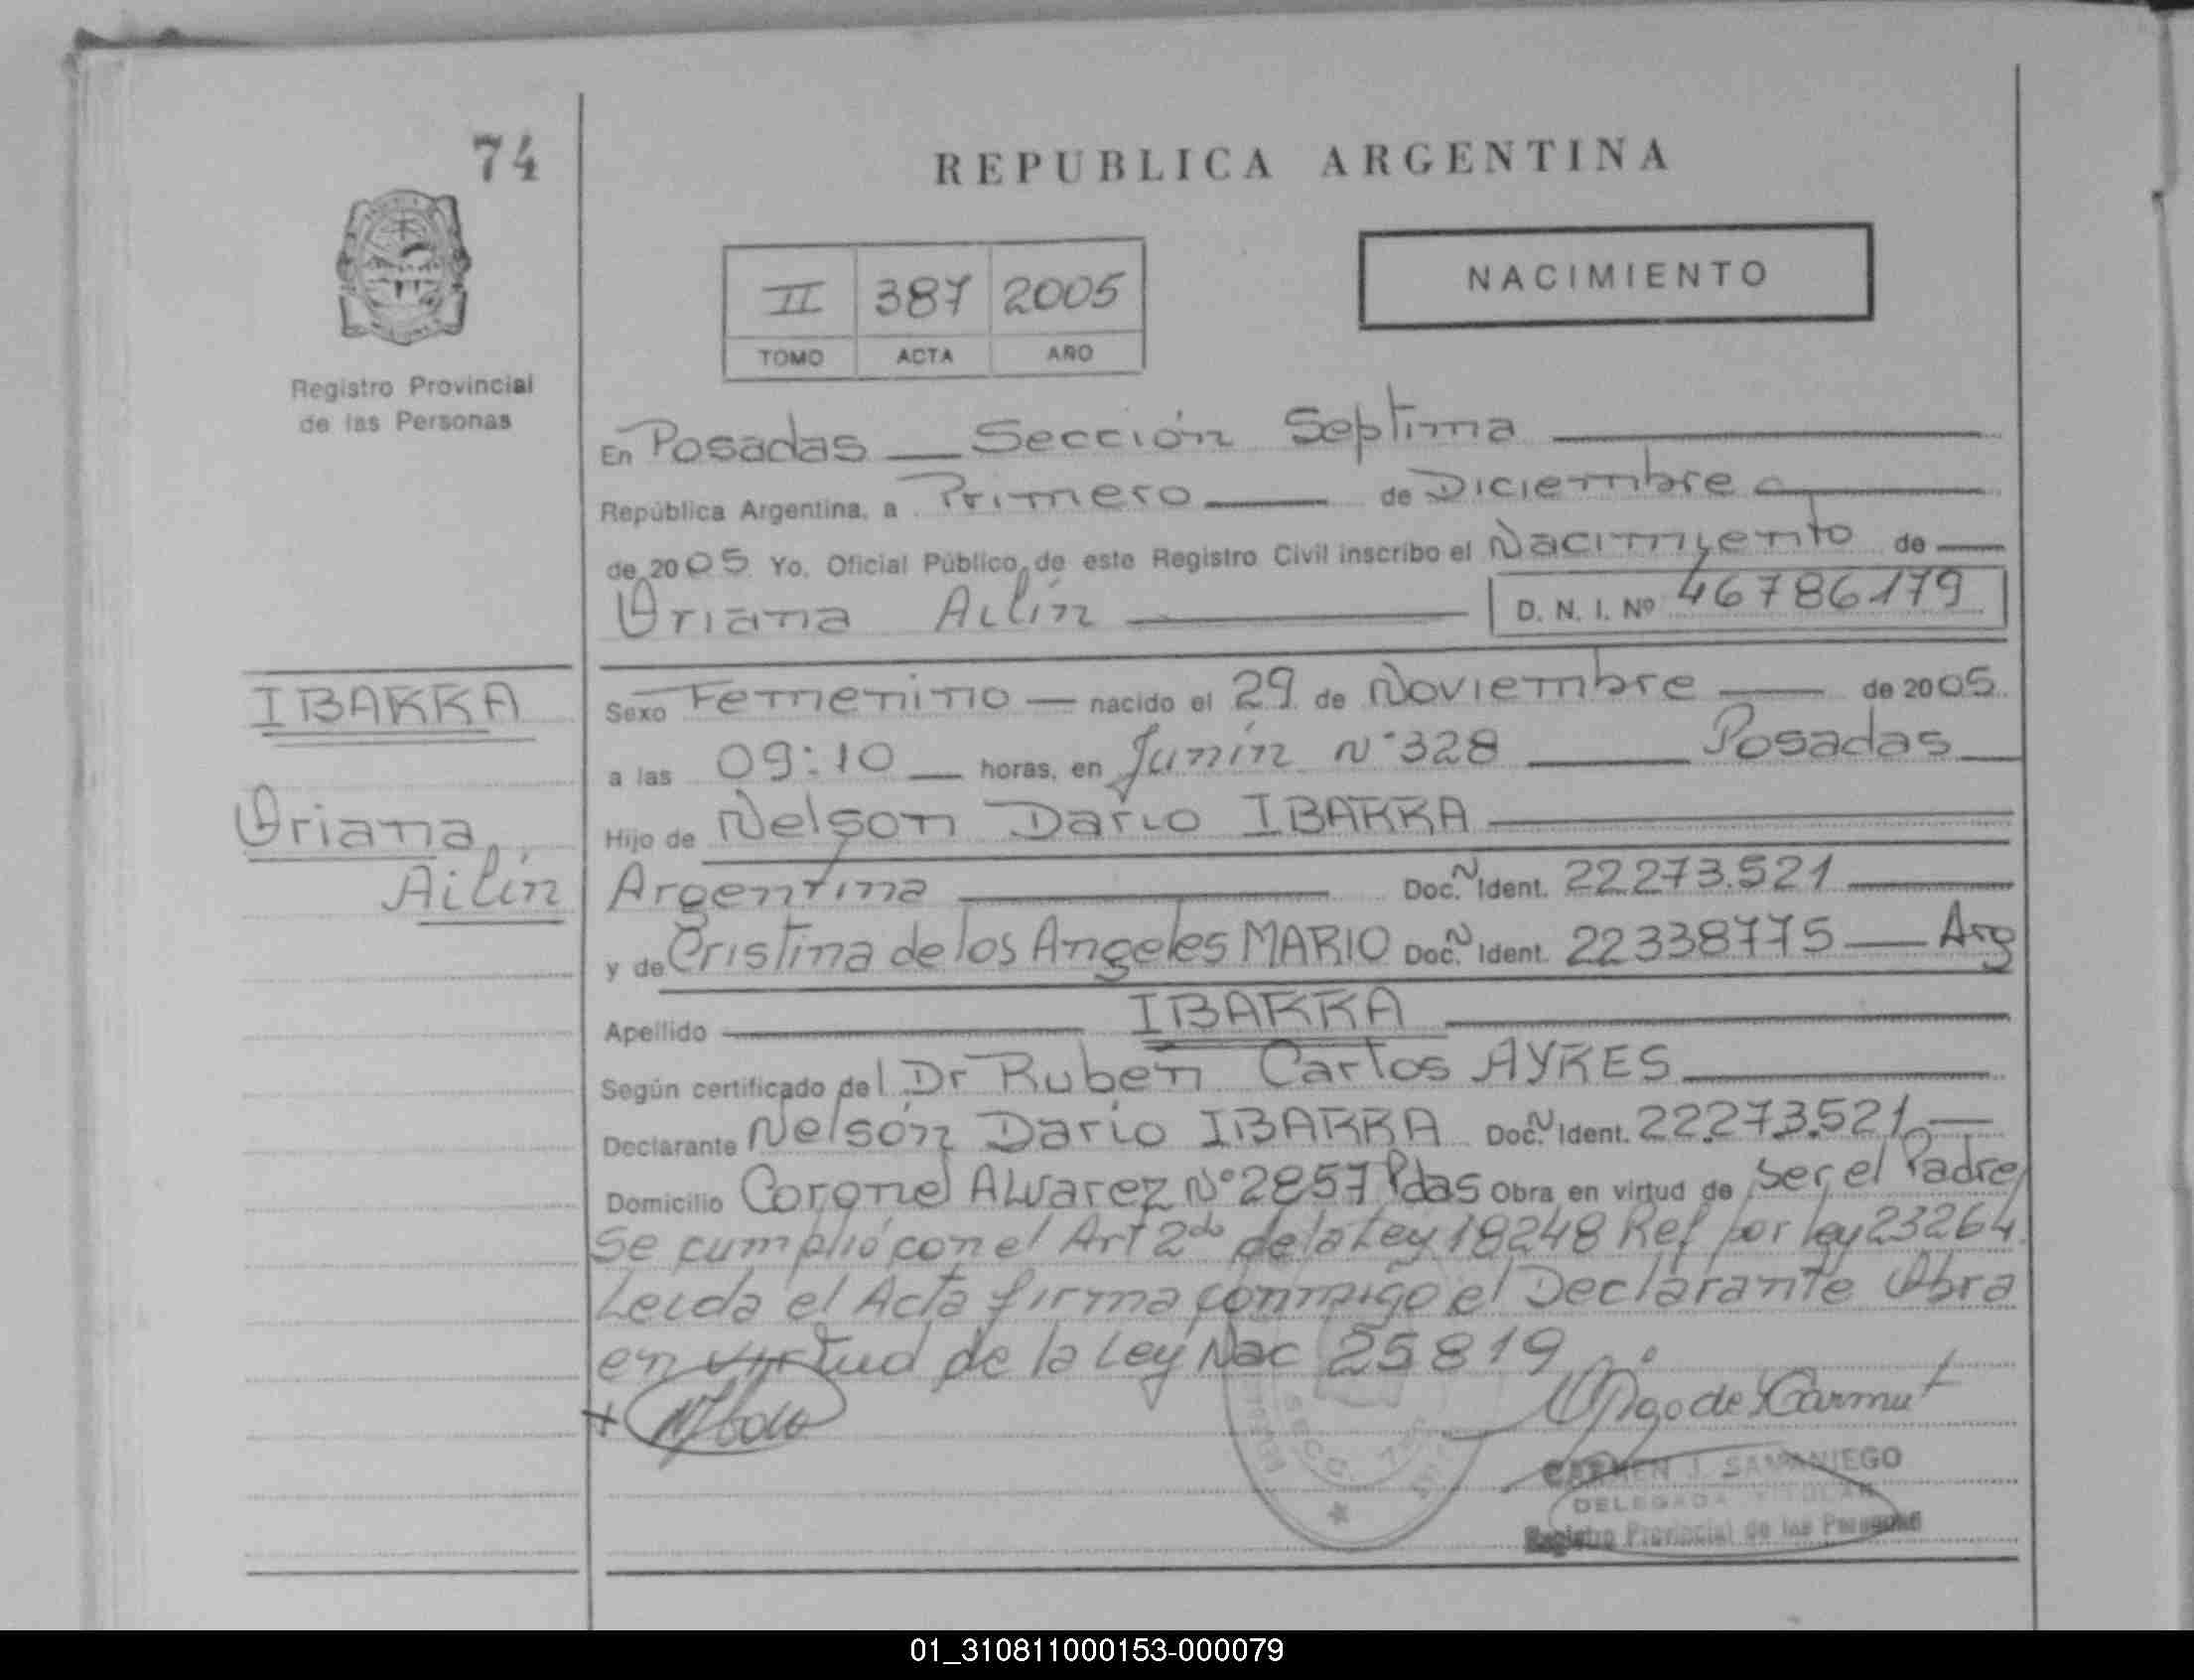 74
REPUBLICA ARGENTINA
NACIMIENTO
II 387 2005
TOMO ACTA AÑO
Registro Provincial
de las Personas
En Posadas Sección Septima
República Argentina, a Primero de Diciembre
de 2005 Yo, Oficial Público de este Registro Civil inscribo el Nacimiento de
Oriana Ailín D. N. I. Nº 46786179
IBARRA
Oriana
Ailín
Sexo Femenino nacido el 29 de Noviembre de 2005
a las 09:10 horas, en Junín Nº 328 Posadas
Hijo de Nelson Dario IBARRA
Argentina Doc. N Ident. 22.273.521
y de Cristina de los Angeles MARIO Doc. N Ident. 22338775 Arg
Apellido IBARRA
Según certificado del Dr Ruben Carlos AYRES
Declarante Nelsón Dario IBARRA Doc. N Ident. 22.273.521
Domicilio Coronel Alvarez Nº 2857 Pdas Obra en virtud de ser el Padre
Se cumplió con el Art 2do de la Ley 18248 Ref por ley 23264
Leida el Acta firma conmigo el Declarante Obra
en virtud de la Ley Nac 25819
CARMEN J. SAMANIEGO
DELEGADA TITULAR
Registro Provincial de las Personas
01_310811000153-000079